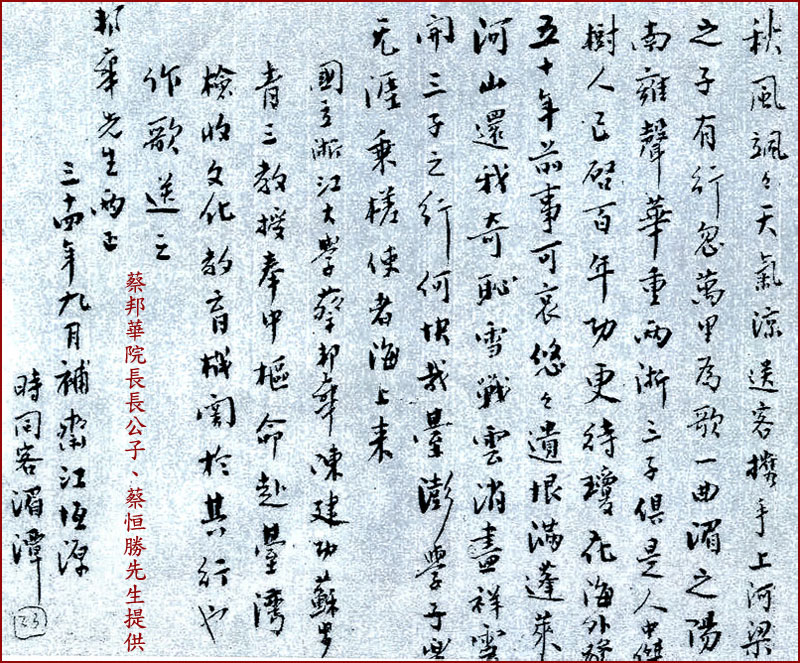 秋風颯々天氣涼送客攜手上河梁
之子有行忽萬里為歌一曲湄之陽
南雍聲華重兩浙三子俱是人中傑
樹人已啓百年功更待瓊花海外發
五十年前事可哀悠々遺恨滿蓬萊
河山還我奇恥雪戰雲消盡祥雲
開三子之行何快哉臺澎學子興
无涯乘槎使者海上来
國立浙江大學蔡邦華陳建功蘇步
青三教授奉中樞命赴臺灣
檢收文化教育機關於其行也
作歌送之
邦華先生兩正
三十四年九月補齋江恒源
時同客湄潭
蔡邦華院長長公子、蔡恒勝先生提供
23